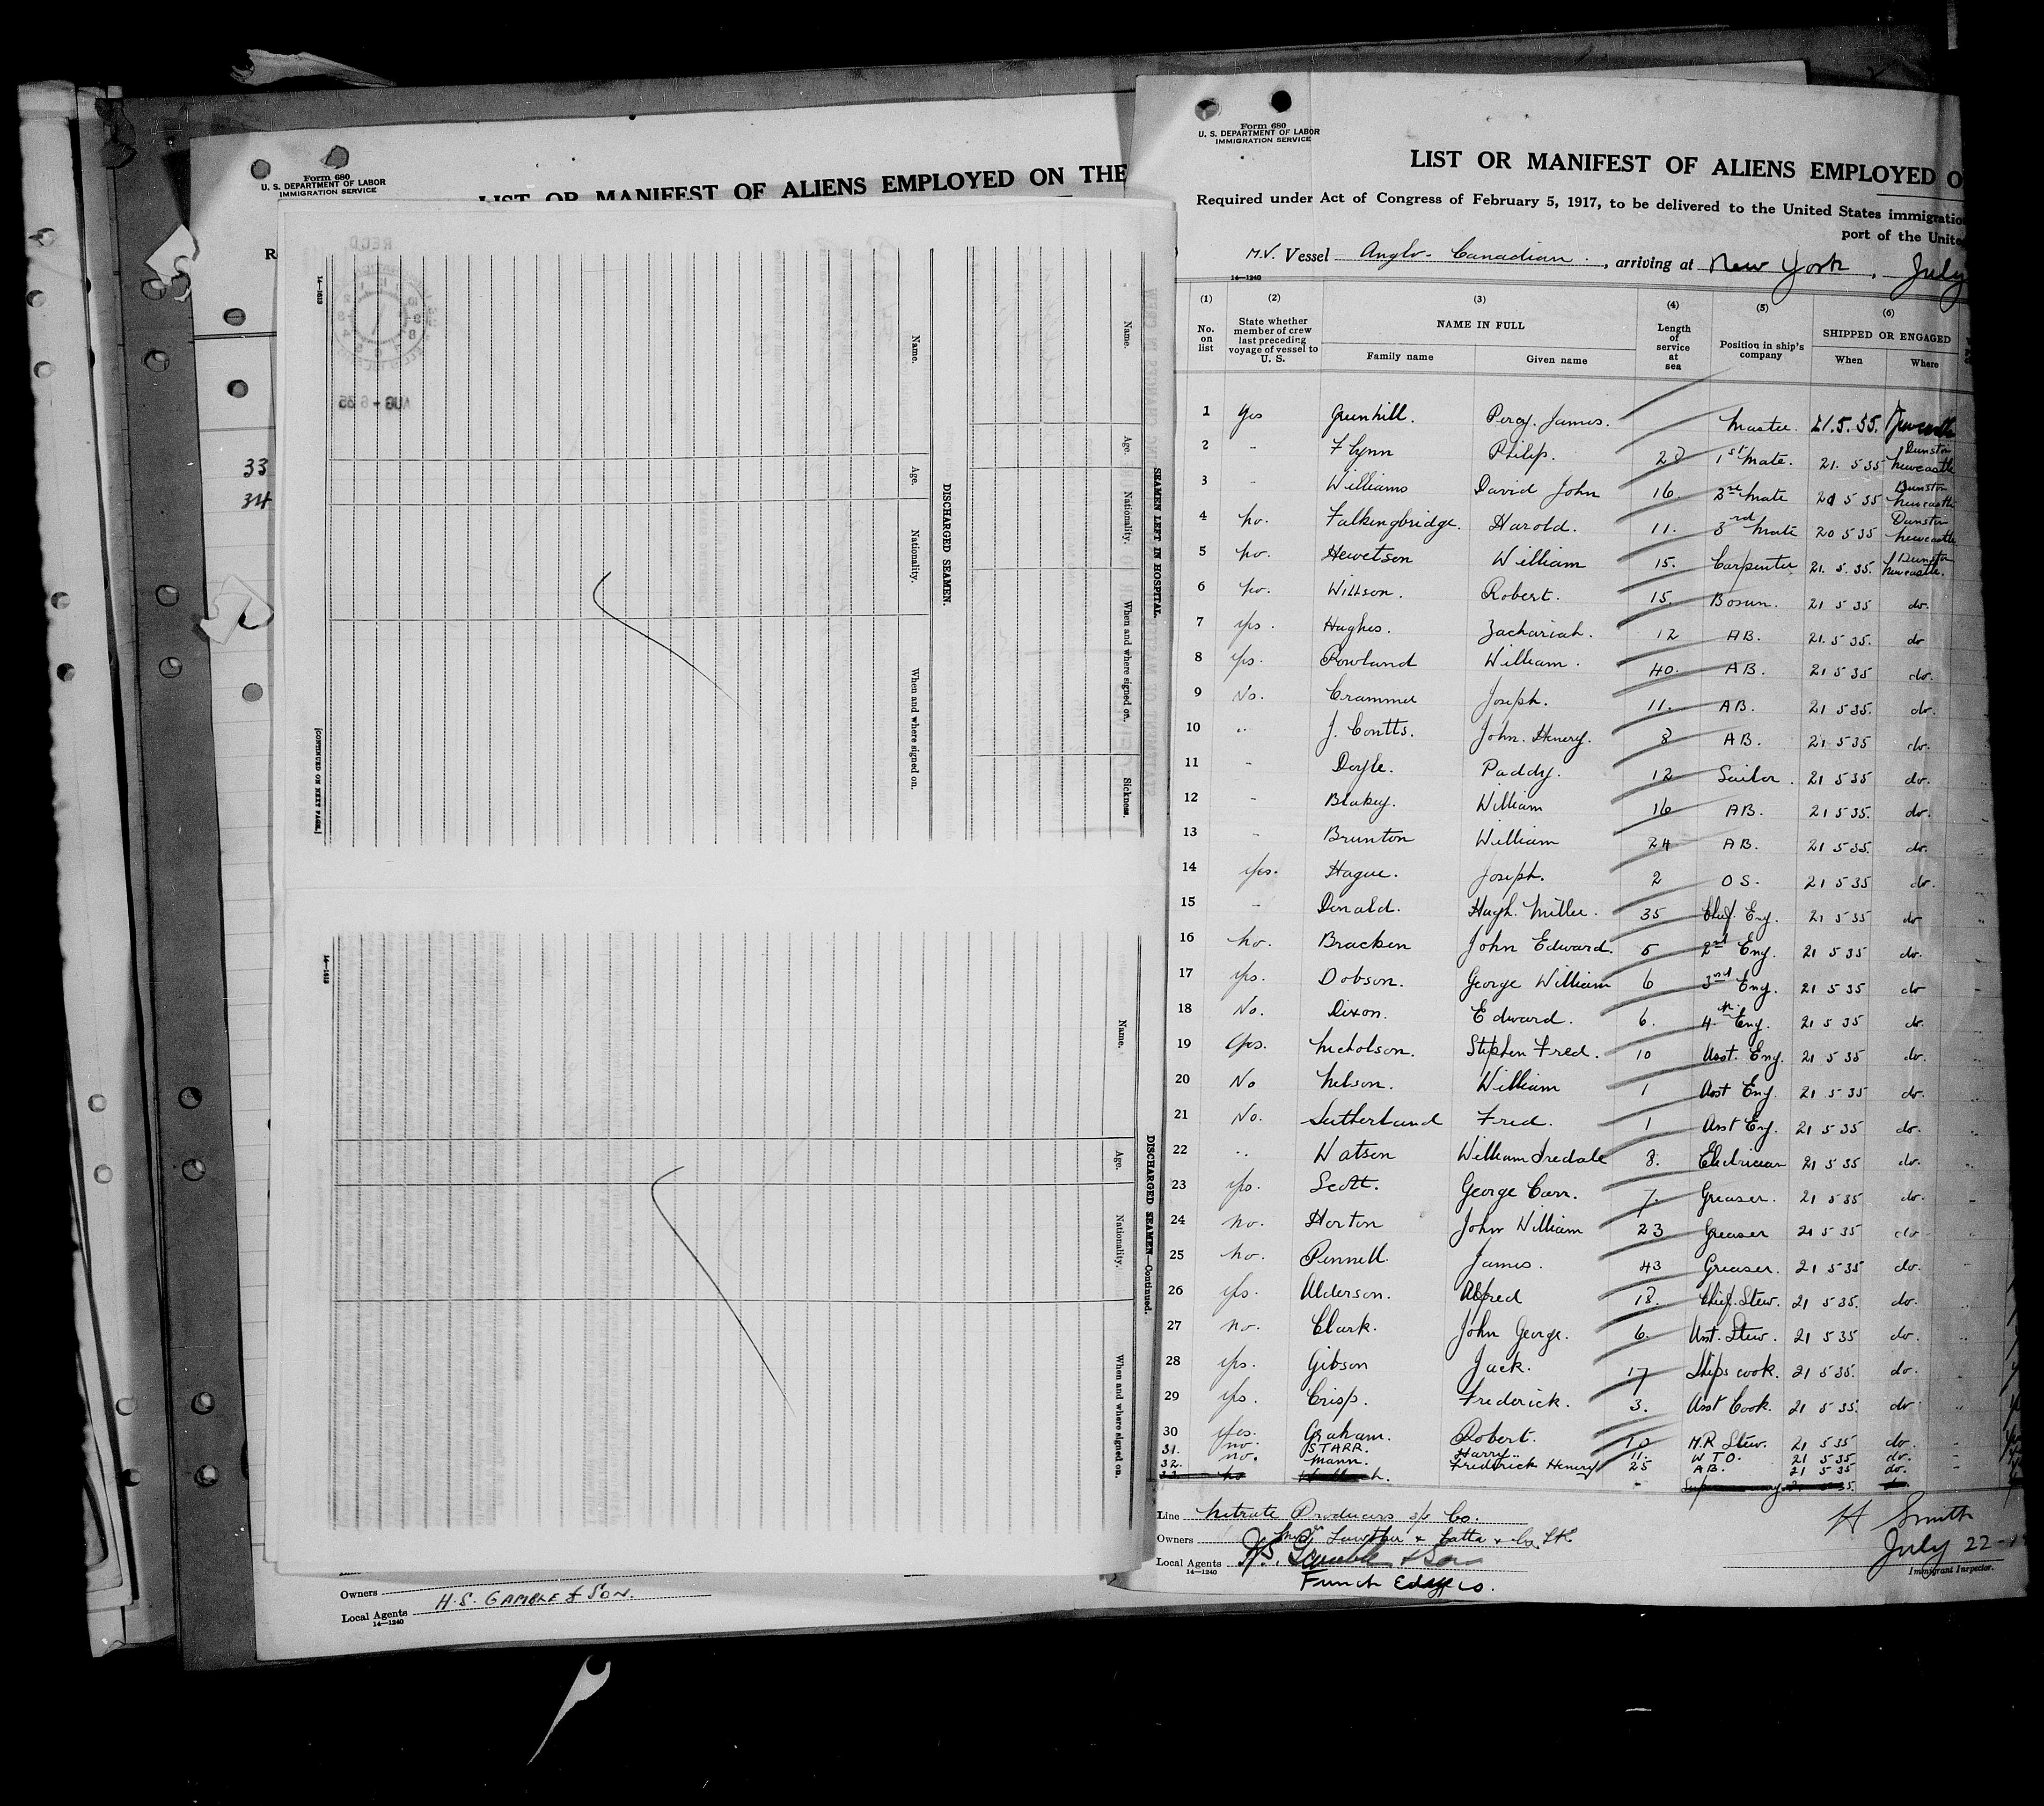 Form 680
U. S. DEPARTMENT OF LABOR
IMMIGRATION SERVICE
LIST OR MANIFEST OF ALIENS EMPLOYED ON THE
R
33
34
RECD
AUG - 6 35
14—1613
Name.
Age.
Nationality.
When and where signed on.
[CONTINUED ON NEXT PAGE.]
DISCHARGED SEAMEN.
Name.
Age.
Nationality.
When and where signed on.
Sickness.
SEAMEN LEFT IN HOSPITAL.
14—1613
Name.
Age.
Nationality.
When and where signed on.
DISCHARGED SEAMEN—Continued.
Owners
Local Agents H.S. GAMBLE & SON.
14—1240
Form 680
U. S. DEPARTMENT OF LABOR
IMMIGRATION SERVICE
LIST OR MANIFEST OF ALIENS EMPLOYED O
Required under Act of Congress of February 5, 1917, to be delivered to the United States immigration
port of the Unite
M.V. Vessel Anglo-Canadian., arriving at New York, July
14—1240
(1) (2) (3) (4) (5) (6)
No. on list
State whether member of crew last preceding voyage of vessel to U. S.
NAME IN FULL
Family name Given name
Length of service at sea
Position in ship's company
SHIPPED OR ENGAGED
When Where
1 Yes Greenhill. Percy James. Master. 21.5.35. Newcastle
2 - Flynn Philip. 28 1st Mate. 21. 5 35 Dunston Newcastle
3 - Williams David John 16. 2nd Mate 20 5 35 Dunston Newcastle
4 no. Falkingbridge. Harold. 11. 3rd Mate 20 5 35 Dunston Newcastle
5 no. Hewetson William 15. Carpenter 21. 5. 35. Dunston Newcastle.
6 no. Willson. Robert. 15. Bosun. 21 5 35 do.
7 yes. Hughes. Zachariah. 12 AB. 21. 5 35. do
8 yes. Rowland William. 40. AB. 21 5 35 do.
9 No. Crammer Joseph. 11. AB. 21 5 35. do.
10 .. J. Coutts. John. Henery. 8 AB. 21 5 35 do.
11 - Doyle. Paddy. 12 Sailor. 21 5 35 do.
12 - Blakey. William 16 AB. 21 5 35. do.
13 - Brunton William 24 AB. 21 5 35. do.
14 yes. Hague. Joseph. 2 OS. 21 5 35 do.
15 - Donald. Hugh. Miller. 35 Chief. Eng. 21 5 35 do
16 no. Bracken John Edward. 5 2nd Eng. 21 5 35 do.
17 yes. Dobson. George William 6 3rd Eng. 21 5 35 do
18 No. Dixon. Edward. 6. 4th Eng. 21 5 35 do.
19 Yes. Nicholson. Stephen Fred. 10 Asst. Eng. 21 5 35 do.
20 No Nelson. William 1 Asst Eng. 21 5 35 do.
21 No. Sutherland Fred. 1 Asst Eng. 21 5 35 do.
22 .. Watson William Iredale 8. Electrician 21 5 35 do.
23 yes. Scott. George Carr. 7. Greaser. 21 5 35 do.
24 no. Horton John William 23 Greaser 21 5 35 do
25 no. Pennell. James. 43 Greaser. 21 5 35 do.
26 yes. Alderson. Alfred 18. Chief. Stew. 21 5 35. do.
27 no. Clark. John George. 6. Asst. Stew. 21 5 35 do.
28 yes. Gibson Jack. 17 Ships cook. 21 5 35. do.
29 yes. Crisp. Frederick. 3. Asst Cook. 21 5 35. do
30 yes. Graham. Robert. 10 M.R Stew. 21 5 35 do.
31. no. STARR. Harry. 11. W T O. 21 5 35 do.
32. no. Mann. Fredrick Henery 25 AB. 21 5 35 do.
Line Nitrate Producers s/s Co.
Owners Lawther & Latta & Co. Ltd
Local Agents H.S. Gamble & Son
14—1240
Funch Edye Co.
H Smith
July 22-
Immigrant Inspector.